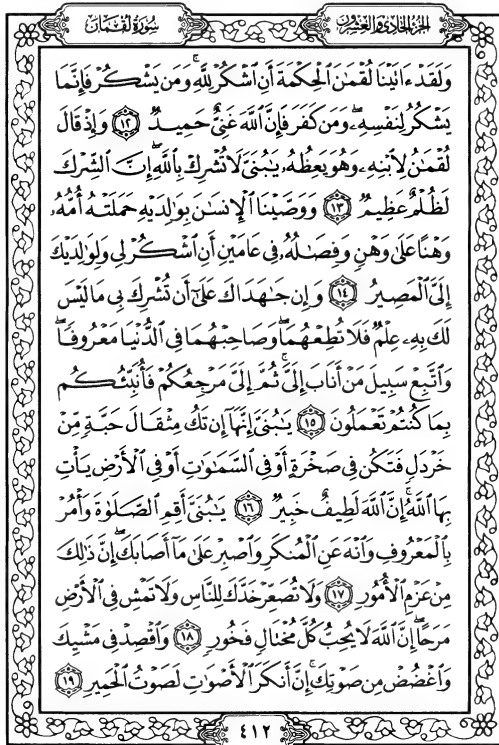 سُورَةُ لُقْمَان
الجُزْءُ الحَادِي وَالعِشْرُونَ
وَلَقَدْ ءَاتَيْنَا لُقْمَٰنَ ٱلْحِكْمَةَ أَنِ ٱشْكُرْ لِلَّهِۚ وَمَن يَشْكُرْ فَإِنَّمَا
يَشْكُرُ لِنَفْسِهِۦۖ وَمَن كَفَرَ فَإِنَّ ٱللَّهَ غَنِىٌّ حَمِيدٌ ١٢ وَإِذْ قَالَ
لُقْمَٰنُ لِٱبْنِهِۦ وَهُوَ يَعِظُهُۥ يَٰبُنَىَّ لَا تُشْرِكْ بِٱللَّهِۖ إِنَّ ٱلشِّرْكَ
لَظُلْمٌ عَظِيمٌ ١٣ وَوَصَّيْنَا ٱلْإِنسَٰنَ بِوَٰلِدَيْهِ حَمَلَتْهُ أُمُّهُۥ
وَهْنًا عَلَىٰ وَهْنٍ وَفِصَٰلُهُۥ فِى عَامَيْنِ أَنِ ٱشْكُرْ لِى وَلِوَٰلِدَيْكَ
إِلَىَّ ٱلْمَصِيرُ ١٤ وَإِن جَٰهَدَاكَ عَلَىٰٓ أَن تُشْرِكَ بِى مَا لَيْسَ
لَكَ بِهِۦ عِلْمٌ فَلَا تُطِعْهُمَاۖ وَصَاحِبْهُمَا فِى ٱلدُّنْيَا مَعْرُوفًاۖ
وَٱتَّبِعْ سَبِيلَ مَنْ أَنَابَ إِلَىَّۚ ثُمَّ إِلَىَّ مَرْجِعُكُمْ فَأُنَبِّئُكُم
بِمَا كُنتُمْ تَعْمَلُونَ ١٥ يَٰبُنَىَّ إِنَّهَآ إِن تَكُ مِثْقَالَ حَبَّةٍ مِّنْ
خَرْدَلٍ فَتَكُن فِى صَخْرَةٍ أَوْ فِى ٱلسَّمَٰوَٰتِ أَوْ فِى ٱلْأَرْضِ يَأْتِ
بِهَا ٱللَّهُۚ إِنَّ ٱللَّهَ لَطِيفٌ خَبِيرٌ ١٦ يَٰبُنَىَّ أَقِمِ ٱلصَّلَوٰةَ وَأْمُرْ
بِٱلْمَعْرُوفِ وَٱنْهَ عَنِ ٱلْمُنكَرِ وَٱصْبِرْ عَلَىٰ مَآ أَصَابَكَۖ إِنَّ ذَٰلِكَ
مِنْ عَزْمِ ٱلْأُمُورِ ١٧ وَلَا تُصَعِّرْ خَدَّكَ لِلنَّاسِ وَلَا تَمْشِ فِى ٱلْأَرْضِ
مَرَحًاۖ إِنَّ ٱللَّهَ لَا يُحِبُّ كُلَّ مُخْتَالٍ فَخُورٍ ١٨ وَٱقْصِدْ فِى مَشْيِكَ
وَٱغْضُضْ مِن صَوْتِكَۚ إِنَّ أَنكَرَ ٱلْأَصْوَٰتِ لَصَوْتُ ٱلْحَمِيرِ ١٩
٤١٢